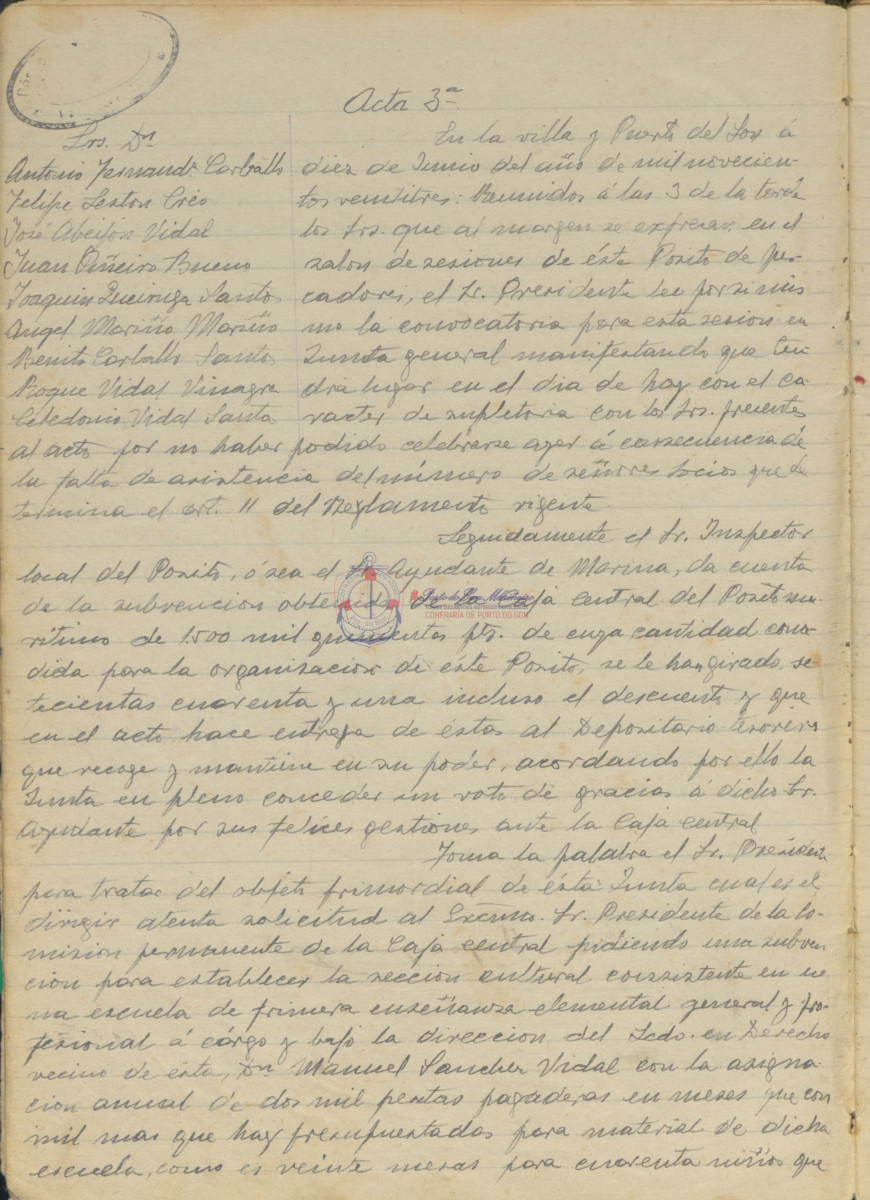 Acta 3ª
Srs. Dn
Antonio Fernand Carballo
Felipe Creo
José Abeijón Vidal
Juan Piñeiro Bueno
Joaquin Queiruga Santos
Angel Mariño Mariño
Benito Carballo Santos
Roque Vidal Vinagre
Celedonio Vidal Santos
En la villa y Puerto del Son á
diez de Junio del año de mil novecien-
tos veintitres: Reunidos á las 3 de la tarde
los Srs. que al margen se expresan en el
salon de sesiones de éste Posito de pes-
cadores, el Sr. Presidente lee por si mis
mo la convocatoria para esta sesion en
Junta general manifestando que ten
drá lugar en el dia de hoy con el ca-
racter de supletoria con los Srs. presentes
al acto por no haber podido celebrarse ayer á consecuencia de
la falta de asistencia del número de señores socios que de
termina el art. 11 del Reglamento vigente.
Seguidamente el Sr. Inspector
local del Posito, ó sea el Ayudante de Marina, da cuenta
de la subvencion obtenida de la Caja central del Posito ma-
ritimo de 1500 mil quinientas pts. de cuya cantidad conce-
dida para la organizacion de éste Posito, se le han girado se-
tecientas cuarenta y una incluso el descuento y que
en el acto hace entrega de éstas al Depositario tesorero
que recoge y mantiene en su poder, acordando por ello la
Junta en pleno conceder un voto de gracias á dicho Sr.
Ayudante por sus felices gestiones ante la Caja central
Toma la palabra el Sr. Presidente
para tratar del objeto primordial de ésta Junta cual es el
dirigir atenta solicitud al Excmo. Sr. Presidente de la Co-
mision permanente de la Caja central pidiendo una subven
cion para establecer la seccion cultural consistente en u
na escuela de primera enseñanza elemental general y pro-
fesional á cárgo y bajo la direccion del Lcdo. en Derecho
vecino de ésta, Dn Manuel Sanchez Vidal con la asigna-
cion anual de dos mil pesetas pagaderas en meses que con
mil mas que hay presupuestadas para material de dicha
escuela, como es veinte mesas para cuarenta niños que
CONFRARIA DE PORTO DO SON